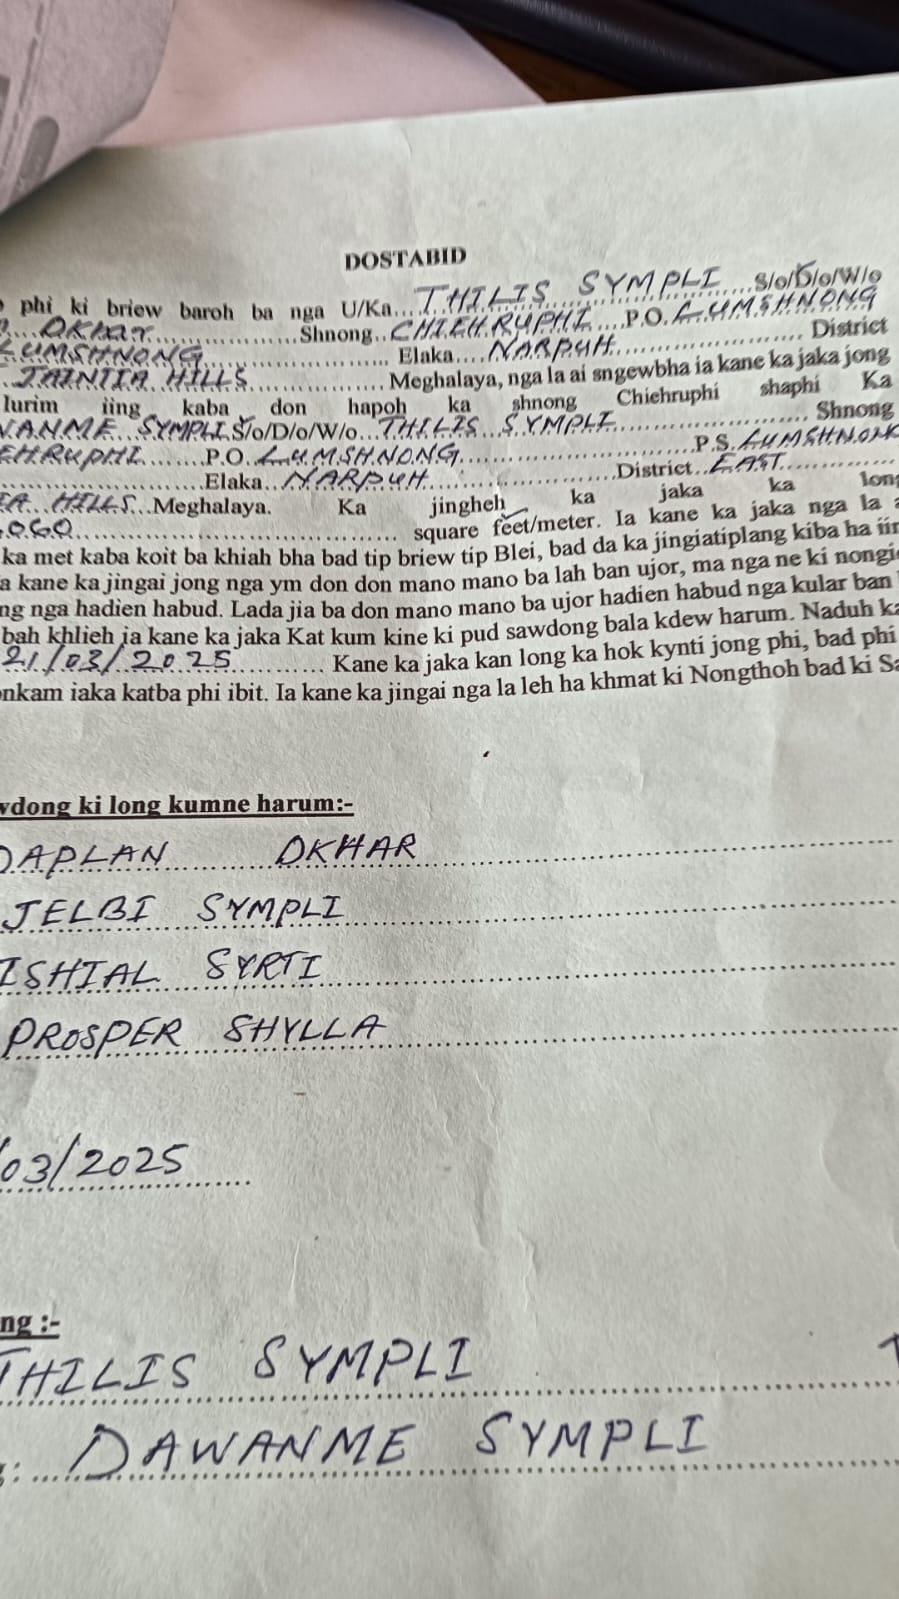 DOSTABID
phi ki briew baroh ba nga U/Ka...THILIS SYMPLI...S/o/D/o/W/o
....OKHAR...................Shnong..CHIEHRUPHI....P.O.LUMSHNONG
LUMSHNONG.......................... Elaka....NARPUH......................... District
.JAINTIA HILLS.................Meghalaya, nga la ai sngewbha ia kane ka jaka jong
lurim iing kaba don hapoh ka shnong Chiehruphi shaphi Ka
WANME SYMPLI.S/o/D/o/W/o...THILIS SYMPLI......................... Shnong
EHRUPHI.......P.O..LUMSHNONG..............................P.S.LUMSHNONG
..........................Elaka..NARPUH..........................District..EAST..............
IA HILLS..Meghalaya. Ka jingheh ka jaka ka long
.060................................... square feet/meter. Ia kane ka jaka nga la a
ka met kaba koit ba khiah bha bad tip briew tip Blei, bad da ka jingiatiplang kiba ha iin
a kane ka jingai jong nga ym don don mano mano ba lah ban ujor, ma nga ne ki nongi
ng nga hadien habud. Lada jia ba don mano mano ba ujor hadien habud nga kular ban
bah khlieh ia kane ka jaka Kat kum kine ki pud sawdong bala kdew harum. Naduh ka
21/03/2025............ Kane ka jaka kan long ka hok kynti jong phi, bad phi
onkam iaka katba phi ibit. Ia kane ka jingai nga la leh ha khmat ki Nongthoh bad ki Sa
wdong ki long kumne harum:-
DAPLAN OKHAR
JELBI SYMPLI
ISHIAL SYRTI
PROSPER SHYLLA
/03/2025
ng :-
THILIS SYMPLI
DAWANME SYMPLI